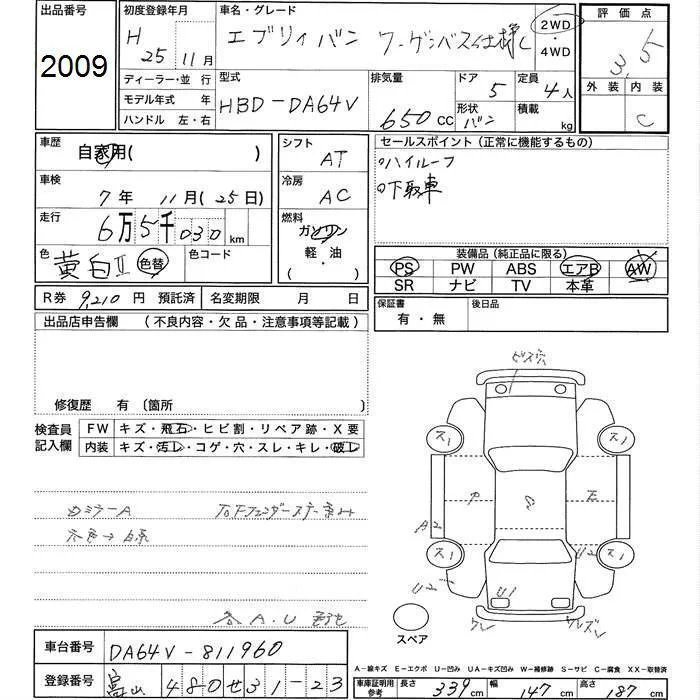 出品番号
2009
初度登録年月
H 25年 11月
ディーラー・並 行
モデル年式 年
ハンドル 左・右
車名・グレード
エブリィバン ワーゲンバス仕様
2WD
・
4WD
型式
HBD-DA64V
排気量
650 CC
ドア
5
定員
4人
形状
バン
積載
kg
評価点
3.5
外装
内装
C
車歴
自家用( )
車検
7年 11月(25日)
走行
6万5千030km
色
黄白II
色替
色コード
シフト
AT
冷房
AC
燃料
ガソリン
軽・油
( ・ )
セールスポイント(正常に機能するもの)
○ハイルーフ
○下取車
装備品(純正品に限る)
PS PW ABS エアB AW
SR ナビ TV 本革
R券 9,210 円 預託済
名変期限 月 日
保証書
有・無
後日品
出品店申告欄 (不良内容・欠品・注意事項等記載)
修復歴 有 〔箇所
検査員
記入欄
FW キズ・飛石・ヒビ割・リペア跡・X要
内装 キズ・汚れ・コゲ・穴・スレ・キレ・破れ
ビス穴
ス1
ス1
ア
A2
ス1
ス1
U2
U1
スペア
車台番号
DA64V-811960
登録番号
富山 480せ31-23
A−線キズ E−エクボ U−凹み UA−キズ凹み W−補修跡 S−サビ C−腐食 X・XX−取替済
車庫証明用
参考
長さ 339cm 幅 147cm 高さ 187cm